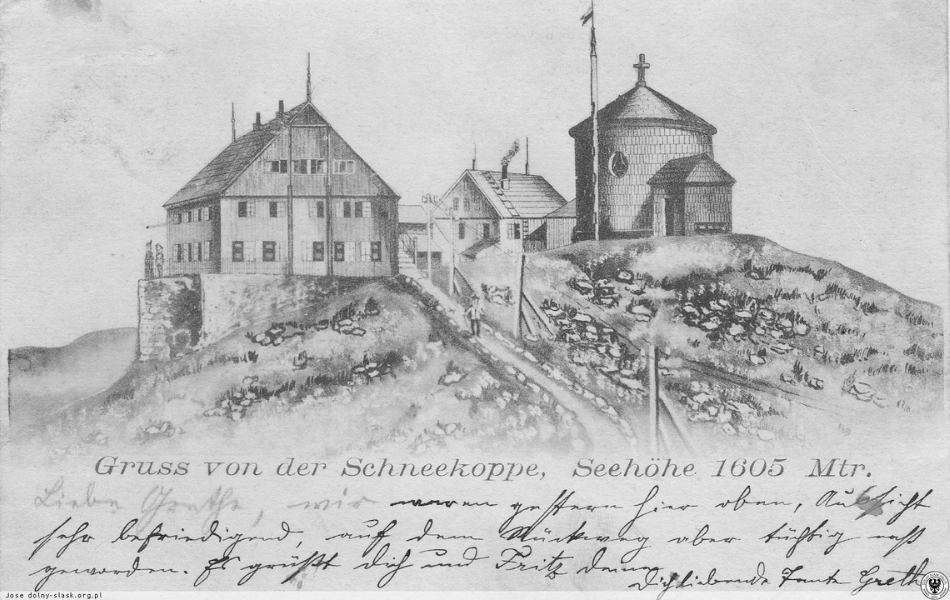 Gruss von der Schneekoppe, Seehöhe 1605 Mtr.
Liebe Grethe, wir waren gestern hier oben, Aussicht
sehr befriedigend, auf dem Rückweg aber tüchtig naß
geworden. Es grüßt dich und Fritz deine
Dich liebende Tante Grethe
Jose dolny-slask.org.pl